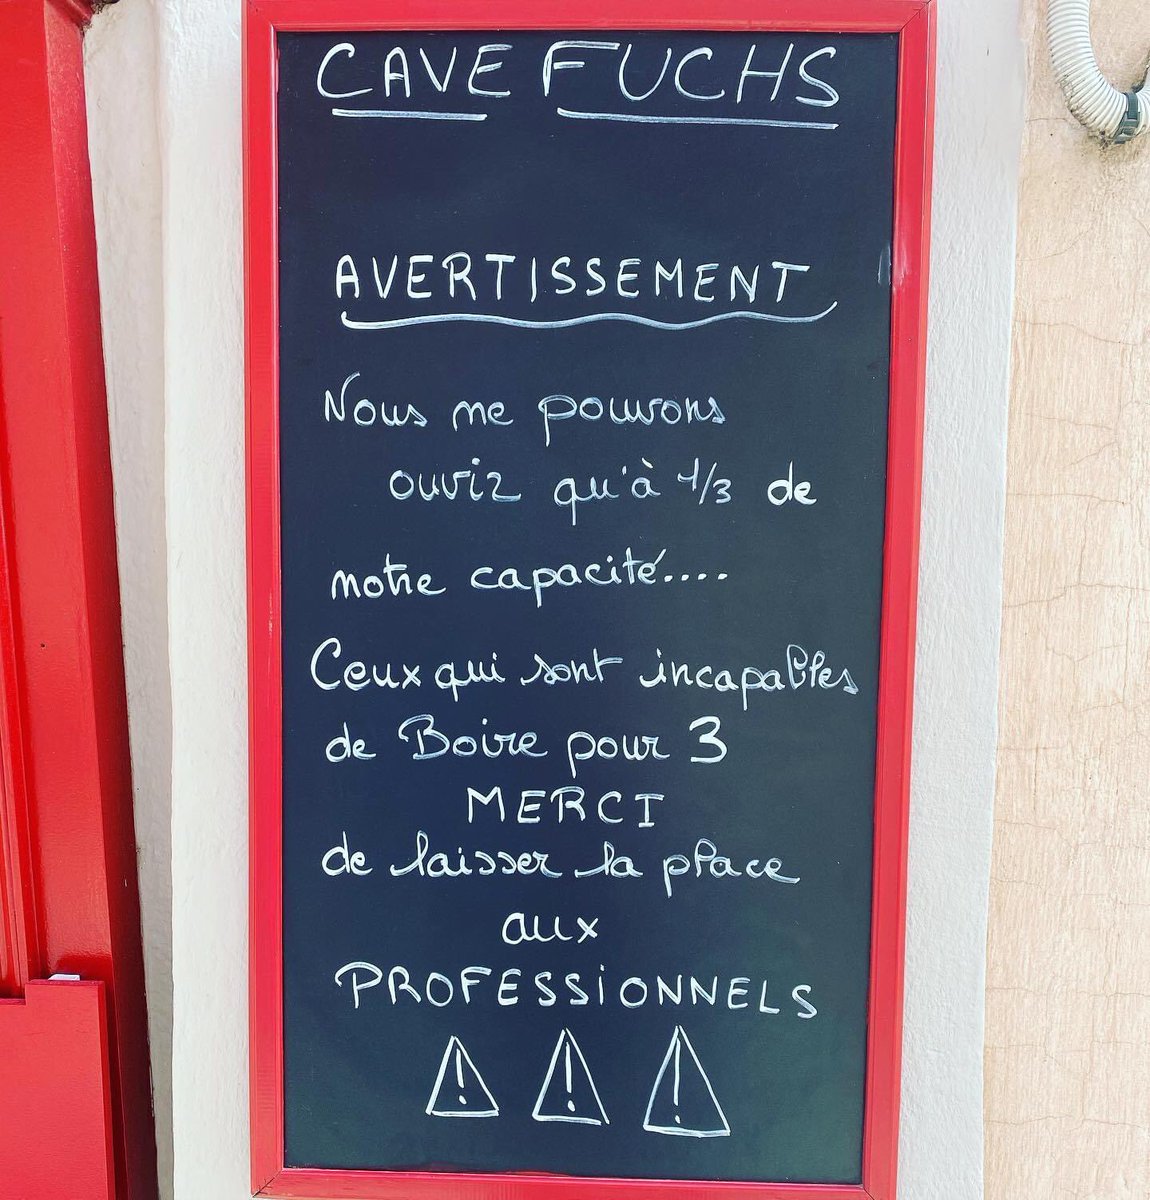 CAVE FUCHS
AVERTISSEMENT
Nous ne pouvons
ouvir qu'à 1/3 de
notre capacité....
Ceux qui sont incapables
de Boire pour 3
MERCI
de laisser la place
aux
PROFESSIONNELS
! ! !